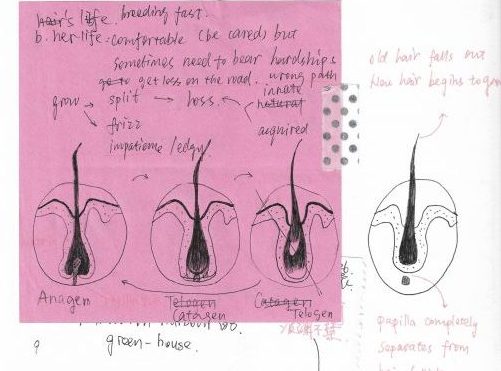 hair's life. breeding fast.
b. her life: comfortable (be cared) but
sometimes need to bear hardships
go to get loss on the road.. wrong path
grow → split → loss. ← innate
natural
frizz
acquired
impatience / edgy
old hair falls out
New hair begins to grow
Anagen
Telogen
Catagen
Catagen
Telogen
green-house.
papilla completely
separates from